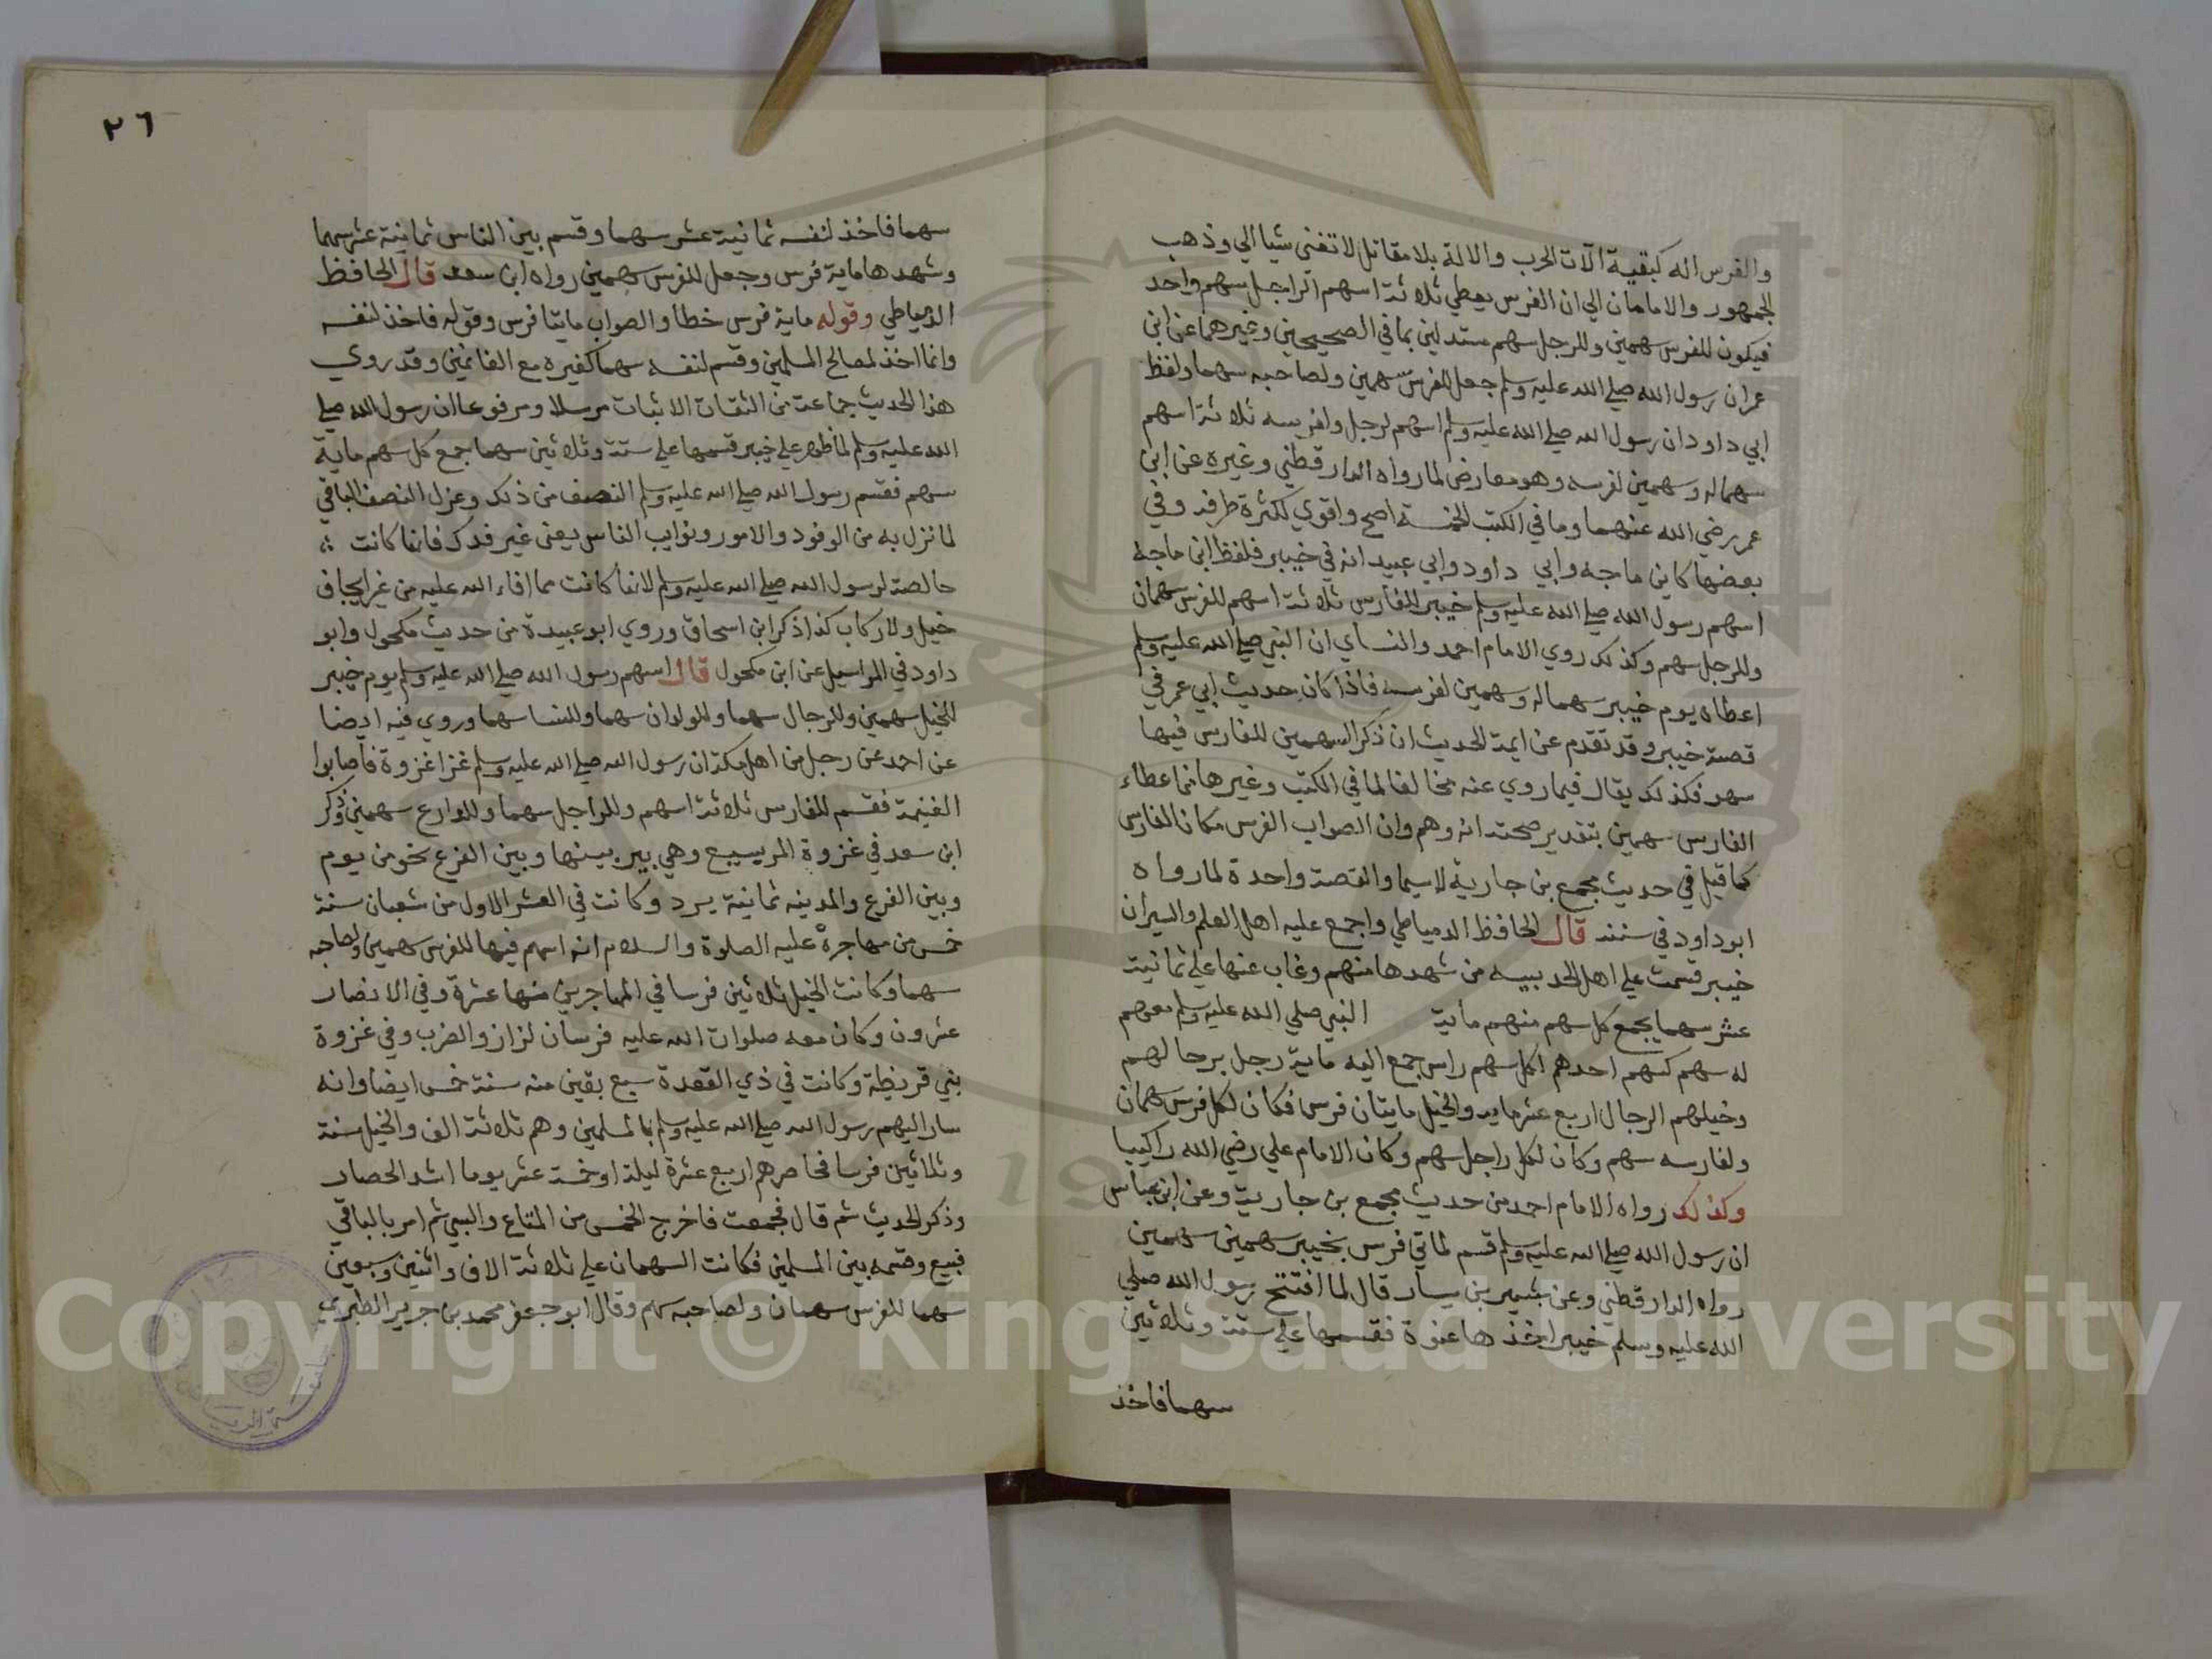 والفرس اله كبقية آلات الحرب والالة بلا مقاتل لا تغني شيا الي وذهب
الجمهور والامامان الي ان الفرس يعطي ثلاثة اسهم الراجل سهم واحد
فيكون للفرس سهمين وللرجل سهم مستدلين بما في الصحيحين وغيرهما عن ابن
عمر ان رسول الله صلي الله عليه وسلم جعل للفرس سهمين ولصاحبه سهما ولفظ
ابي داود ان رسول الله صلي الله عليه وسلم اسهم لرجل ولفرسه ثلاثة اسهم
سهما له وسهمين لفرسه وهو معارض لما رواه الدارقطني وغيره عن ابن
عمر رضي الله عنهما وما في الكتب الخمسة اصح واقوي لكثرة طرقه وفي
بعضها كابن ماجه وابي داود وابي عبيد انه في خيبر فلفظ ابن ماجة
اسهم رسول الله صلي الله عليه وسلم خيبر للفارس ثلاثة اسهم للفرس سهمان
وللرجل سهم وكذلك روي الامام احمد والنساي ان النبي صلي الله عليه وسلم
اعطاه يوم خيبر سهما له وسهمين لفرسه فاذا كان حديث ابي عمر في
قصة خيبر وقد تقدم عن ايمة الحديث ان ذكر السهمين للفارس فيها
سهو فكذلك يقال فيما روي عنه مخالفا لما في الكتب وغيرها مما اعطاء
الفارس سهمين بتقدير صحته انه وهم وان الصواب الفرس مكان الفارس
كما قيل في حديث مجمع بن جارية لا سيما والقصة واحدة لما رواه
ابو داود في سننه قال الحافظ الدمياطي واجمع عليه اهل العلم والسير ان
خيبر قسمت علي اهل الحديبيه من شهدها منهم وغاب عنها علي ثمانية
عشر سهما يجمع كل سهم منهم ماية النبي صلي الله عليه وسلم معهم
له سهم كسهم احدهم لكل سهم راس جمع اليه ماية رجل برجالهم
وخيلهم الرجال اربع عشر مايه والخيل مايتان فرس فكان لكل فرس سهمان
ولفارسه سهم وكان لكل راجل سهم وكان الامام علي رضي الله راكبا
وكذلك رواه الامام احمد من حديث مجمع بن جارية وعن ابن عباس
ان رسول الله صلي الله عليه وسلم قسم لماتي فرس بخيبر سهمين سهمين
رواه الدارقطني وعن بشير بن يسار قال لما افتتح رسول الله صلي
الله عليه وسلم خيبر اخذها عنوة فقسمها علي ستة وثلاثين
سهما فاخذ
٢٦
سهما فاخذ لنفسه ثمانية عشر سهما وقسم بين الناس ثمانية عشر سهما
وشهدها ماية فرس وجعل للفرس سهمين رواه ابن سعد قال الحافظ
الدمياطي وقوله ماية فرس خطأ والصواب مايتا فرس وقوله فاخذ لنفسه
وانما اخذ لمصالح المسلمين وقسم لنفسه سهما كغيره مع الغانمين وقد روي
هذا الحديث جماعة من الثقات الاثبات مرسلا ومرفوعا ان رسول الله صلي
الله عليه وسلم لما ظهر علي خيبر قسمها علي ستة وثلاثين سهما جمع كل سهم ماية
سهم فقسم رسول الله صلي الله عليه وسلم النصف من ذلك وعزل النصف الباقي
لما نزل به من الوفود والامور ونوايب الناس يعني غير فدك فانها كانت
خالصة لرسول الله صلي الله عليه وسلم لانها كانت مما افاء الله عليه من غير ايجاف
خيل ولا ركاب كذا ذكر ابن اسحاق وروي ابو عبيدة من حديث مكحول وابو
داود في المراسيل عن ابن مكحول قال اسهم رسول الله صلي الله عليه وسلم يوم خيبر
للخيل سهمين وللرجال سهما وللولدان سهما وللنسا سهما وروي فيه ايضا
عن احمد عن رجل من اهل مكة ان رسول الله صلي الله عليه وسلم غزا غزوة فاصابوا
الغنيمة فقسم للفارس ثلاثة اسهم وللراجل سهما وللدارع سهمين وذكر
ابن سعد في غزوة المريسيع وهي بير بينها وبين الفرع نحو من يوم
وبين الفرع والمدينه ثمانية برد وكانت في العشر الاول من شعبان سنة
خمس من مهاجره عليه الصلوة والسلام انه اسهم فيها للفرس سهمين ولصاحبه
سهما وكانت الخيل ثلاثين فرسا في المهاجرين منها عشرة وفي الانصار
عشرون وكان معه صلوات الله عليه فرسان لزاز والضرب وفي غزوة
بني قريظة وكانت في ذي القعدة سبع بقين منه سنة خمس ايضا وانه
سار اليهم رسول الله صلي الله عليه وسلم بالمسلمين وهم ثلاثة الف والخيل ستة
وثلاثين فرسا فحاصرهم اربع عشرة ليلة او خمسة عشر يوما اشد الحصار
وذكر الحديث ثم قال فجمعت فاخرج الخمس من المتاع والسبي ثم امر بالباقي
فبيع وقسمه بين المسلمين فكانت السهمان علي ثلاثة الاف واثنين وسبعين
سهما للفرس سهمان ولصاحبه سهم وقال ابو جعفر محمد بن جرير الطبري
Copyright © King Saud University